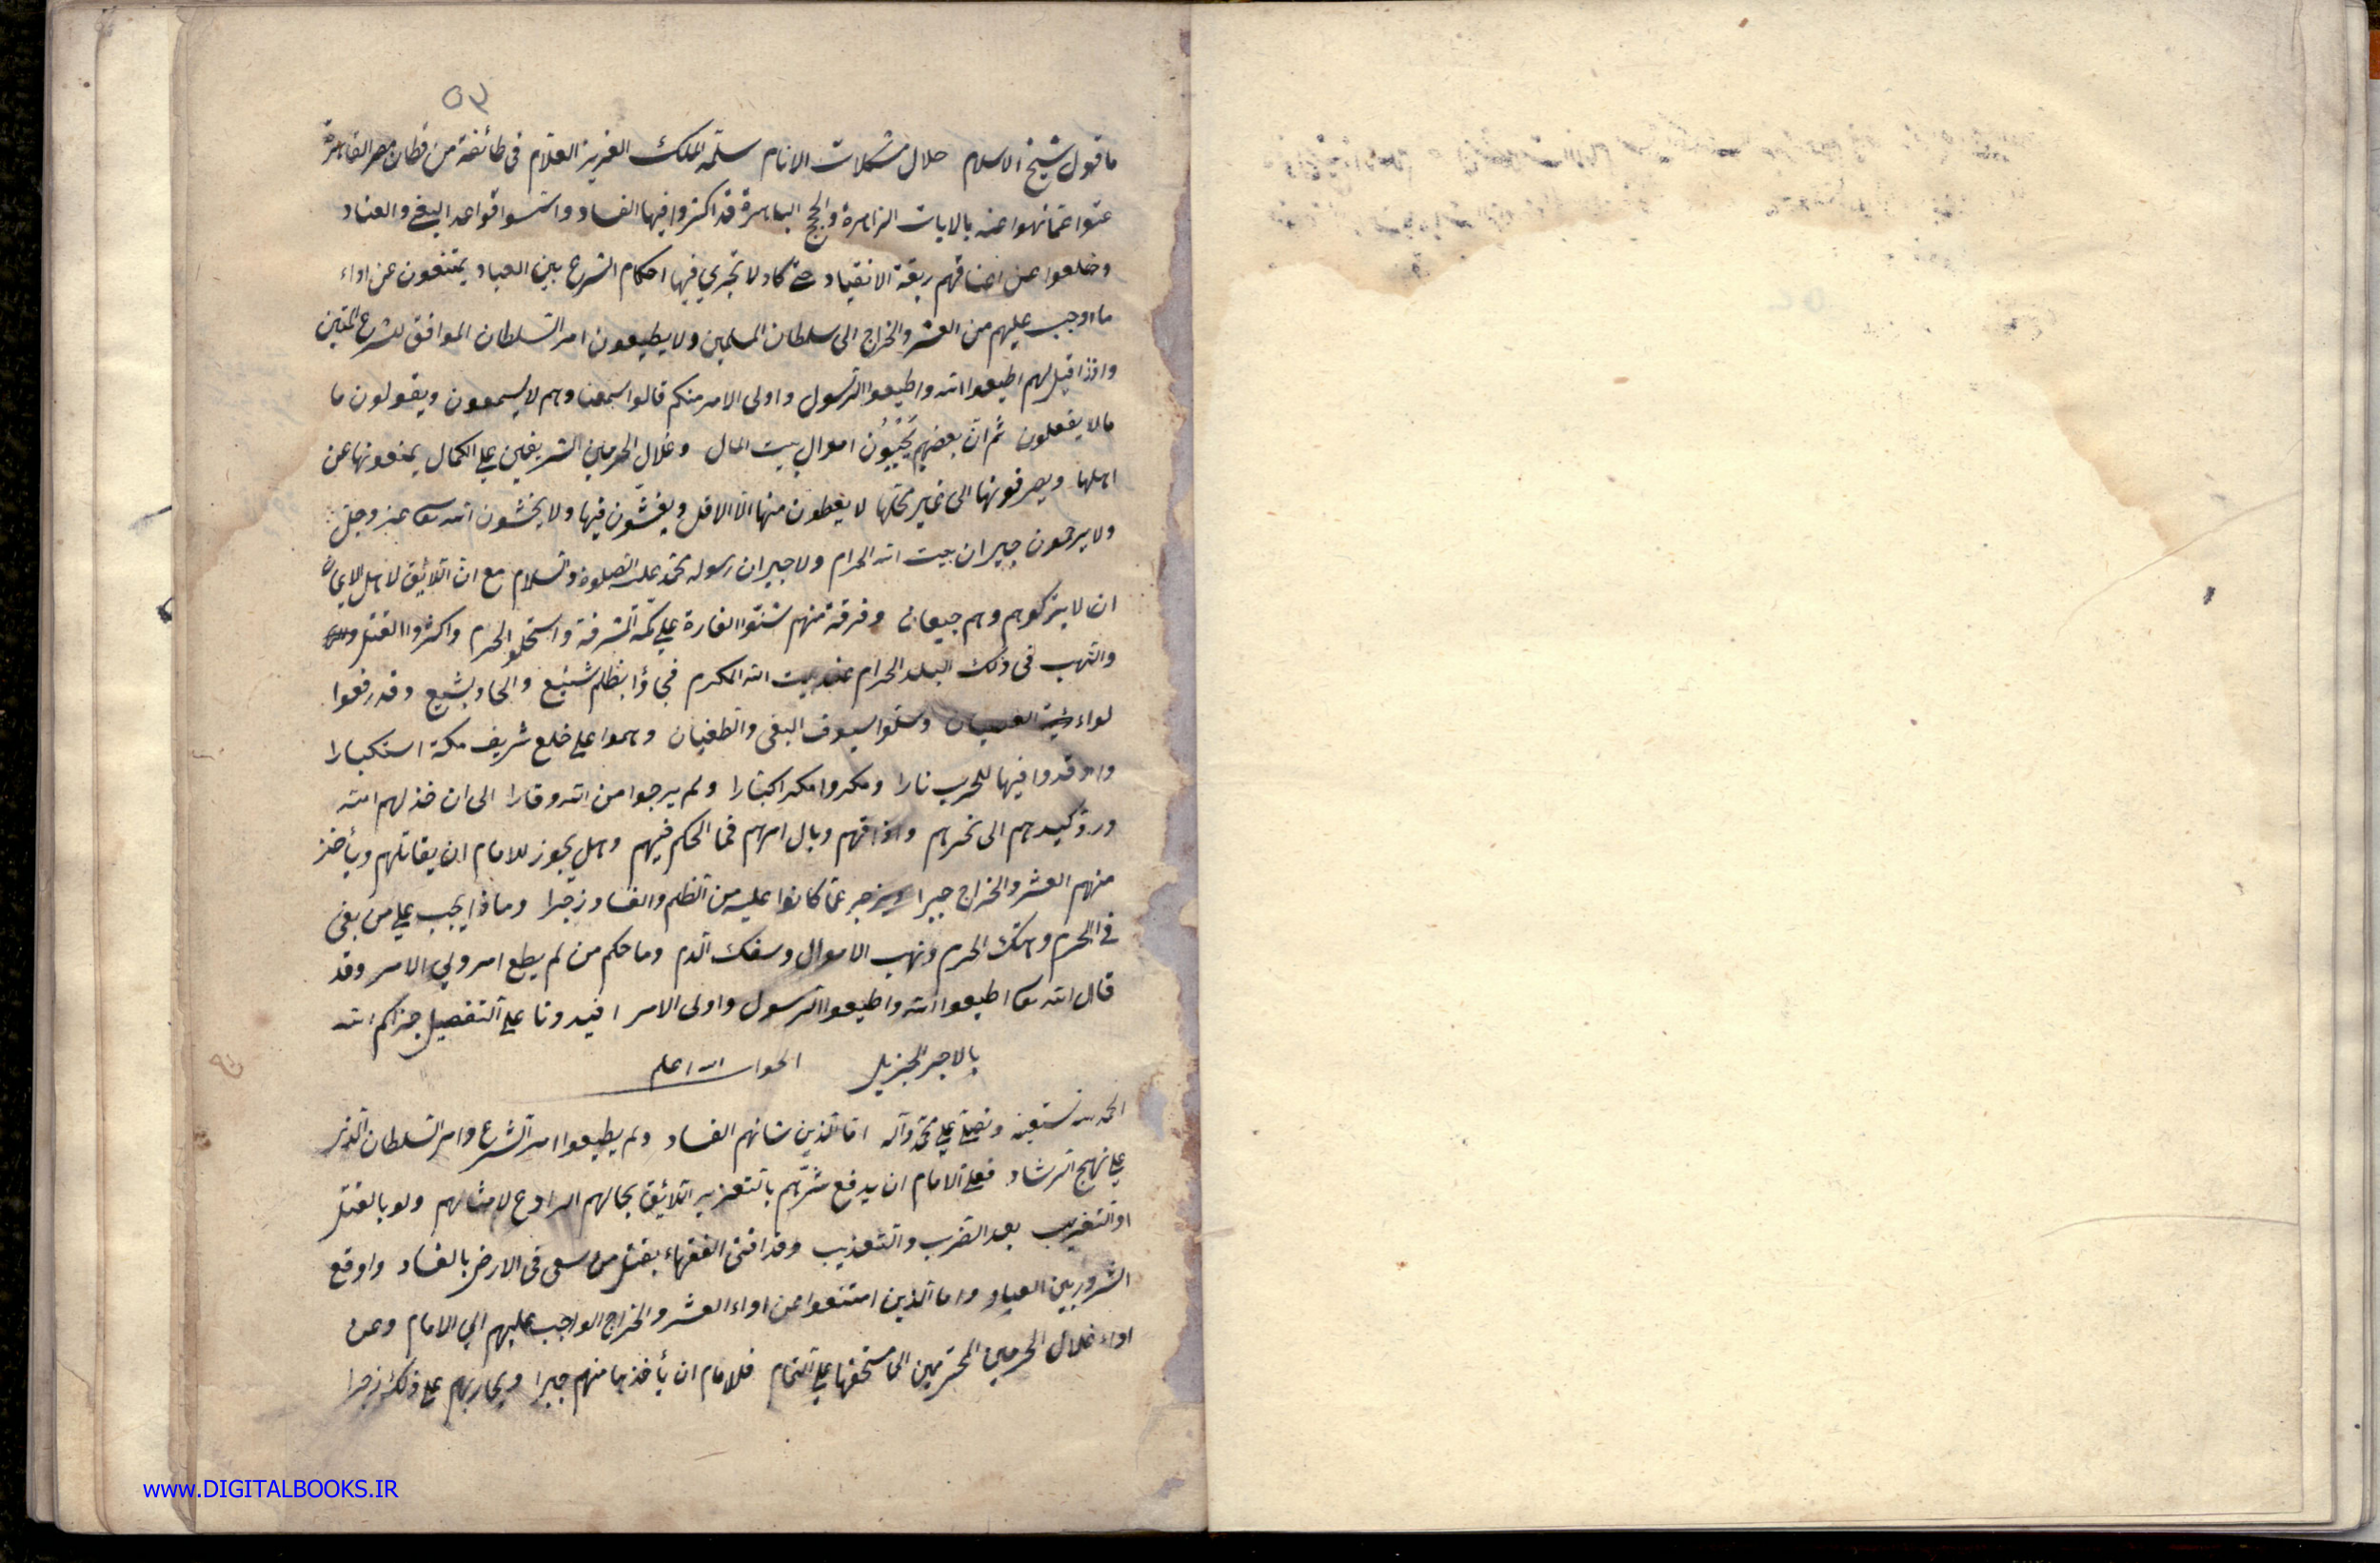 ٥٣
ما قول شيخ الاسلام حلال مشكلات الانام سلمه الملك العزيز العلام فى طائفة من قطان مصر القاهرة
عتوا عما نهوا عنه بالايات الزاهرة والحجج الباهرة قد اكثروا فيها الفساد واسسوا قواعد البغي والعناد
وخلعوا عن اعناقهم ربقة الانقياد حتى كاد لا تجري فيها احكام الشرع بين العباد يمتنعون عن اداء
ما اوجب عليهم من العشر والخراج الى سلطان المسلمين ولا يطيعون امر السلطان الموافق للشرع المتين
واذا قيل لهم اطيعوا الله واطيعوا الرسول واولى الامر منكم قالوا سمعنا وهم لا يسمعون ويقولون ما
ما لا يفعلون ثم ان بعضهم يجبون اموال بيت المال وغلال الحرمين الشريفين على الكمال يمنعونها عن
اهلها ويصرفونها الى غير محلها لا يعطون منها الا الاقل ويغشون فيها ولا يخشون الله تعالى عز وجل
ولا يرحمون جيران بيت الله الحرام ولا جيران رسوله محمد عليه الصلوة والسلام مع ان اللائق لاهل الايمان
ان لا يتركوهم وهم جيعان وفرقة منهم شنوا الغارة على مكة المشرفة واستحلوا الحرم واكثروا القتل
والنهب فى ذلك البلد الحرام عند بيت الله المكرم فجاؤا بظلم شنيع والحاد بشيع وقد رفعوا
لواء العصيان وسلوا سيوف البغى والطغيان وهموا على خلع شريف مكة استكبارا
واوقدوا فيها للحرب نارا ومكروا مكرا كبارا ولم يرجوا من الله وقارا الى ان خذلهم الله
ورد كيدهم الى نحرهم واذاقهم وبال امرهم فما الحكم فيهم وهل يجوز للامام ان يقاتلهم ويأخذ
منهم العشر والخراج جبرا ويزجر عما كانوا عليه من الظلم والفساد زجرا وماذا يجب على من بغى
في الحرم وهتك الحرم ونهب الاموال وسفك الدم وما حكم من لم يطع امر ولي الامر وقد
قال الله تعالى اطيعوا الله واطيعوا الرسول واولى الامر افيدونا على التفصيل جزاكم الله
بالاجر الجزيل الجواب الله اعلم
الحمد لله نستعينه ونصلي على محمد وآله اما الذين شانهم الفساد ولم يطيعوا امر الشرع وامر السلطان الذي
على نهج الرشاد فعلى الامام ان يدفع شرهم بالتعزير اللائق بحالهم الرادع لامثالهم ولو بالقتل
او التغريب بعد الضرب والتعذيب وقد افتى الفقهاء بقتل من سعى فى الارض بالفساد واوقع
الشرور بين العباد واما الذين امتنعوا عن اداء العشر والخراج الواجب عليهم الى الامام وعن
اداء غلال الحرمين المحترمين الى مستحقها على التمام فللامام ان يأخذها منهم جبرا ويحاربهم على ذلك زجرا
www.DIGITALBOOKS.IR